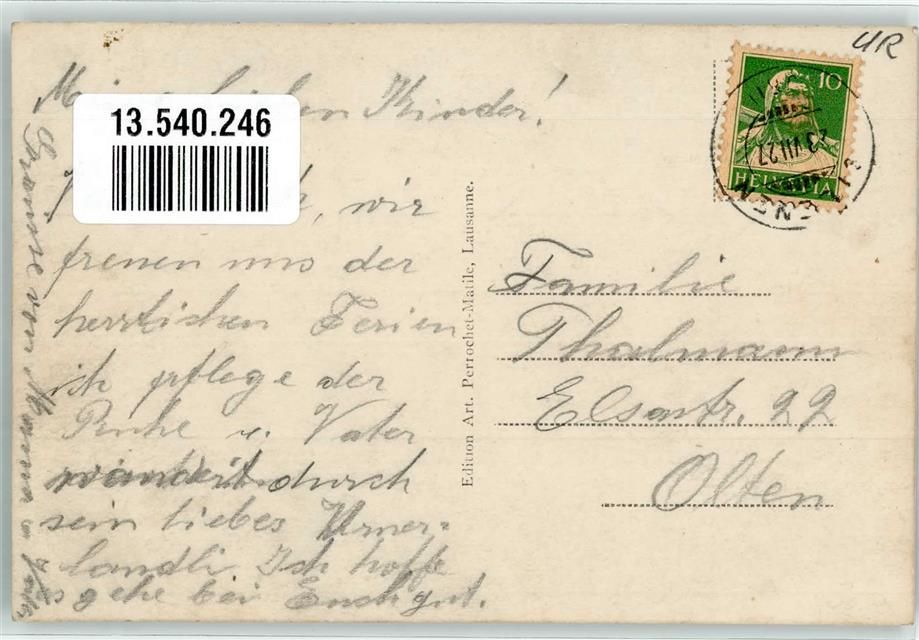 UR
13.540.246
Kinder!
wir
freuen uns der
herrlichen Ferien
ich pflege der
Ruhe u. Vater
wandert durch
sein liebes Urner=
ländli. Ich hoffe
es gehe bei Euch gut.
Grüsse von Mamma u.
Edition Art. Perrochet-Matile, Lausanne.
10
HELVETIA
23.VII.27
Familie
Thalmann
Elsastr. 22
Olten